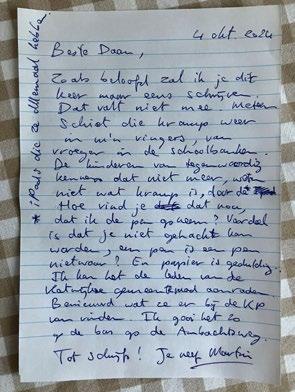 4 okt 2024
Beste Daan,
Zoals beloofd zal ik je dit
keer maar eens schrijven.
Dat valt niet mee. Meteen
schiet die kramp weer
in m'n vingers, van
vroeger in de schoolbanken.
De kinderen van tegenwoordig
kennen dat niet meer, weten
niet wat kramp is, door de
Hoe vind je dat nou,
dat ik de pen opneem? Voordeel
is dat je niet gehackt kan
worden, een pen is een pen
nietwaar? En papier is geduldig.
Ik kan het de leden van de
Katwijkse gemeenteraad aanraden.
Benieuwd wat ze er bij de KP
van vinden. Ik gooi het zo
op de bus op de Ambachtsweg.
Tot schrijfs! Je neef Martin
* iPads die ze allemaal hebben.